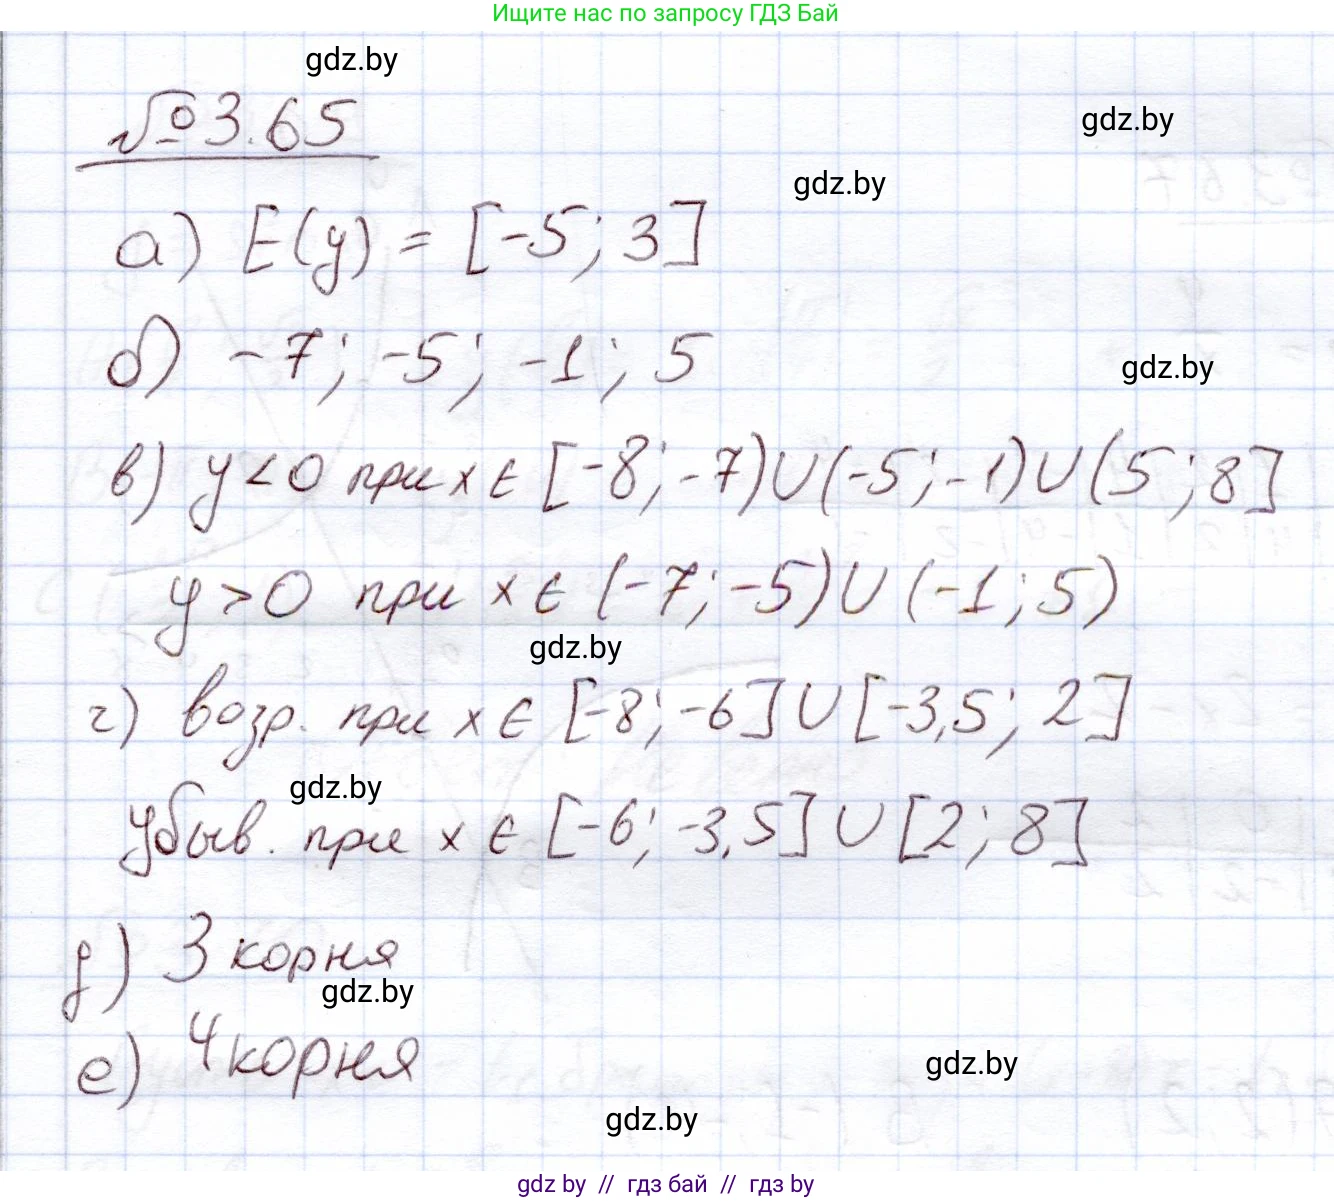 Ищите нас по запросу ГДЗ Бай
gdz.by
№3.65
gdz.by
gdz.by
а) E(y) = [-5; 3]
б) -7; -5; -1; 5
gdz.by
в) y < 0 при x ∈ [-8; -7) ∪ (-5; -1) ∪ (5; 8]
y > 0 при x ∈ (-7; -5) ∪ (-1; 5)
gdz.by
г) возр. при x ∈ [-8; -6] ∪ [-3,5; 2]
gdz.by
убыв. при x ∈ [-6; -3,5] ∪ [2; 8]
д) 3 корня
gdz.by
е) 4 корня
gdz.by
gdz.by
gdz by // гдз бай // gdz by